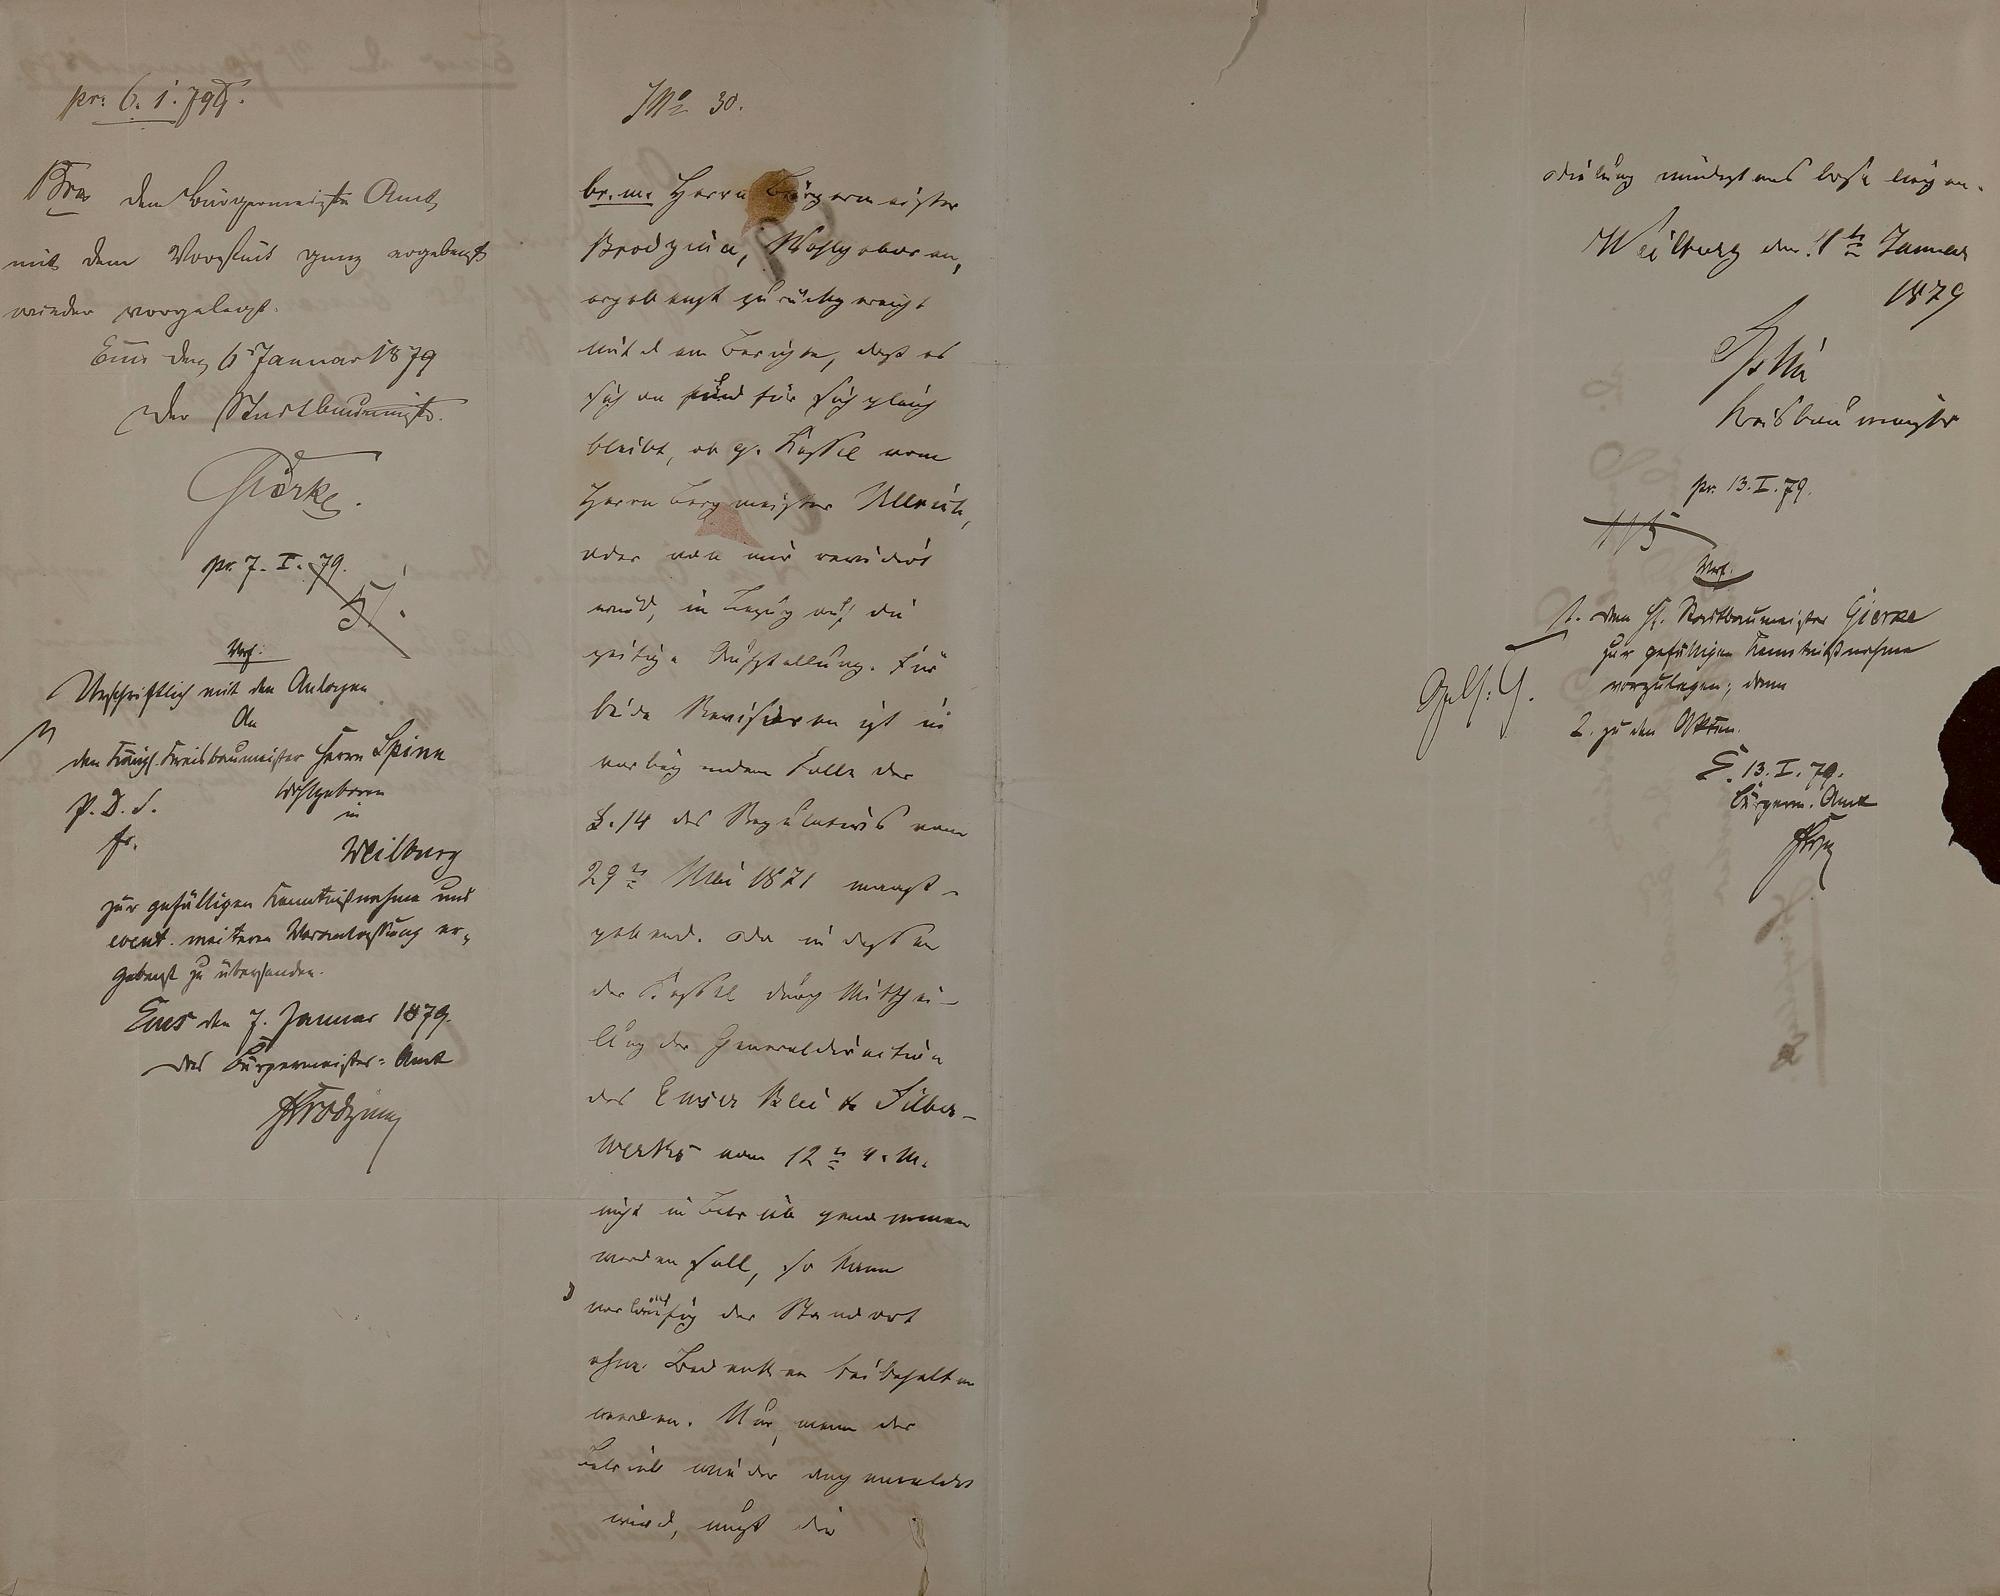 pr. 6. 1. 79
Brm dem Bürgermeister Amt
mit dem Vorschluß ganz ergebenst
wieder vorgelegt.
Ems den 6 Januar 1879
Der Stadtbaumeister.
Gierke.
pr. 7. I. 79.
51.
Verf:
Urschriftlich mit den Anlagen
An
den Königl. Kreisbaumeister Herrn Spinn
Wohlgeboren
P. D. S.
in
fr.
Weilburg
zur gefälligen Kenntnißnahme und
event. weiteren Veranlassung er-
gebenst zu übersenden.
Ems den 7. Januar 1879.
Das Bürgermeister-Amt
Brodzina
No 30.
br. m. Herrn Bürgermeister
Brodzina, Wohlgeboren,
ergebenst zurückgereicht
mit dem Berichte, daß es
sich an und für sich gleich
bleibt, ob q. Kessel vom
Herrn Bergmeister Ullrich,
oder von mir revidirt
wird, in Bezug auf die
zeitige Aufstellung. Für
beide Revisoren ist im
vorliegenden Falle der
§. 14 des Regulativs vom
29ten Mai 1871 maaßt-
gebend. Da indessen
der Kessel durch Mitthei-
lung der Generaldirection
des Emser Blei & Silber-
werks vom 12ten v. M.
nicht in Betrieb genommen
werden soll, so kann
vorläufig der Standort
ohne Bedenken beibehalten
werden. Nur, wenn der
Betrieb wieder angemeldet
wird, muß die
Weilburg den 11ten Januar
1879
Spinn
Kreisbaumeister
pr. 13. I. 79.
115
Verf.
1. dem H. Stadtbaumeister Gierke
zur gefälligen Kenntnißnahme
vorzulegen; dann
Gels: G.
2. zu den Akten.
E. 13. I. 79.
Bürgerm. Amt